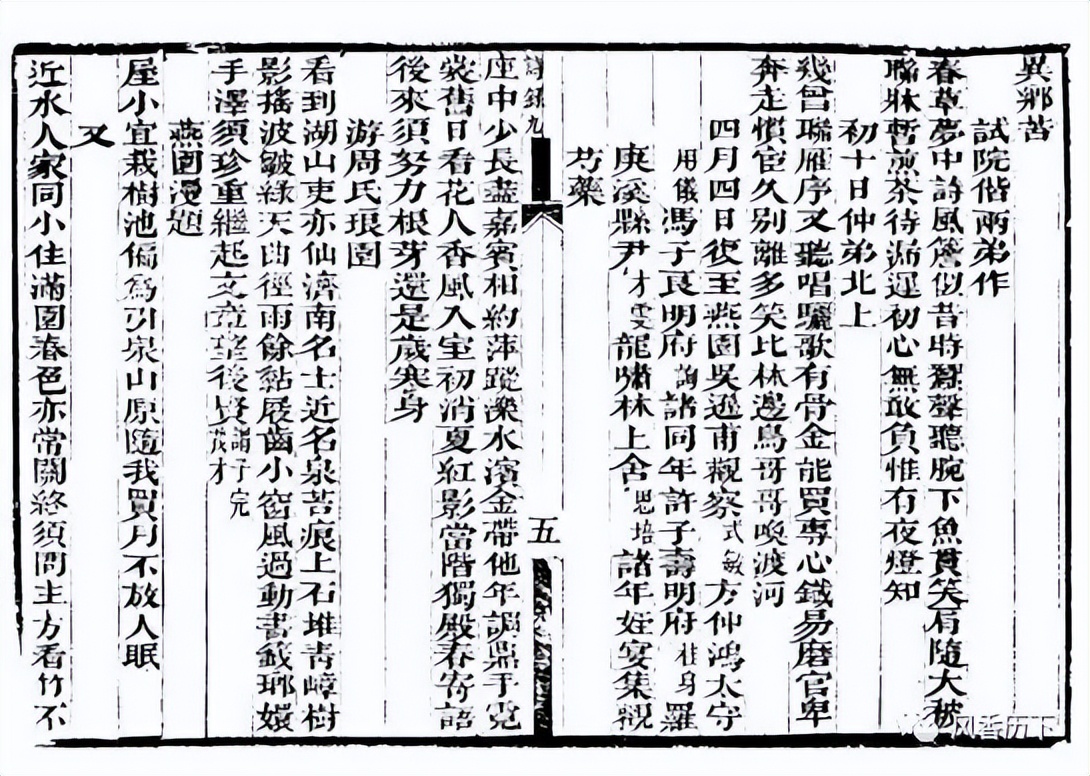 異鄉苦
試院偕兩弟作
春草夢中詩風簷似昔時蠶聲聽腕下魚貫笑肩隨大被
聯牀暫煎茶待漏遲初心無敢負惟有夜燈知
初十日仲弟北上
幾曾聯雁序又聽唱驪歌有骨金能買專心鐵易磨官卑
奔走慣宦久別離多笑比林邊鳥哥哥喚渡河
四月四日復至燕園吳遜甫觀察式敏方仲鴻太守
用儀馮子良明府詢諸同年許子壽明府 身羅
庚溪縣尹才雯龍嘯林上舍思培諸年姪宴集觀
芍藥
詩錄九
五
座中少長盡嘉賓相約萍蹤濼水濱金帶他年調鼎手霓
裳舊日看花人香風入室初消夏紅影當階獨殿春寄語
後來須努力根芽還是歲寒身
游周氏琅園
看到湖山吏亦仙濟南名士近名泉苔痕上石堆青嶂樹
影搖波皺綠天曲徑雨餘黏屐齒小窗風過動書籤瑯嬛
手澤須珍重繼起文章望後賢謂子完茂才
燕園漫題
屋小宜栽樹池偏為引泉山原隨我買月不放人眠
又
近水人家同小住滿園春色亦常關終須問主方看竹不
风香历下